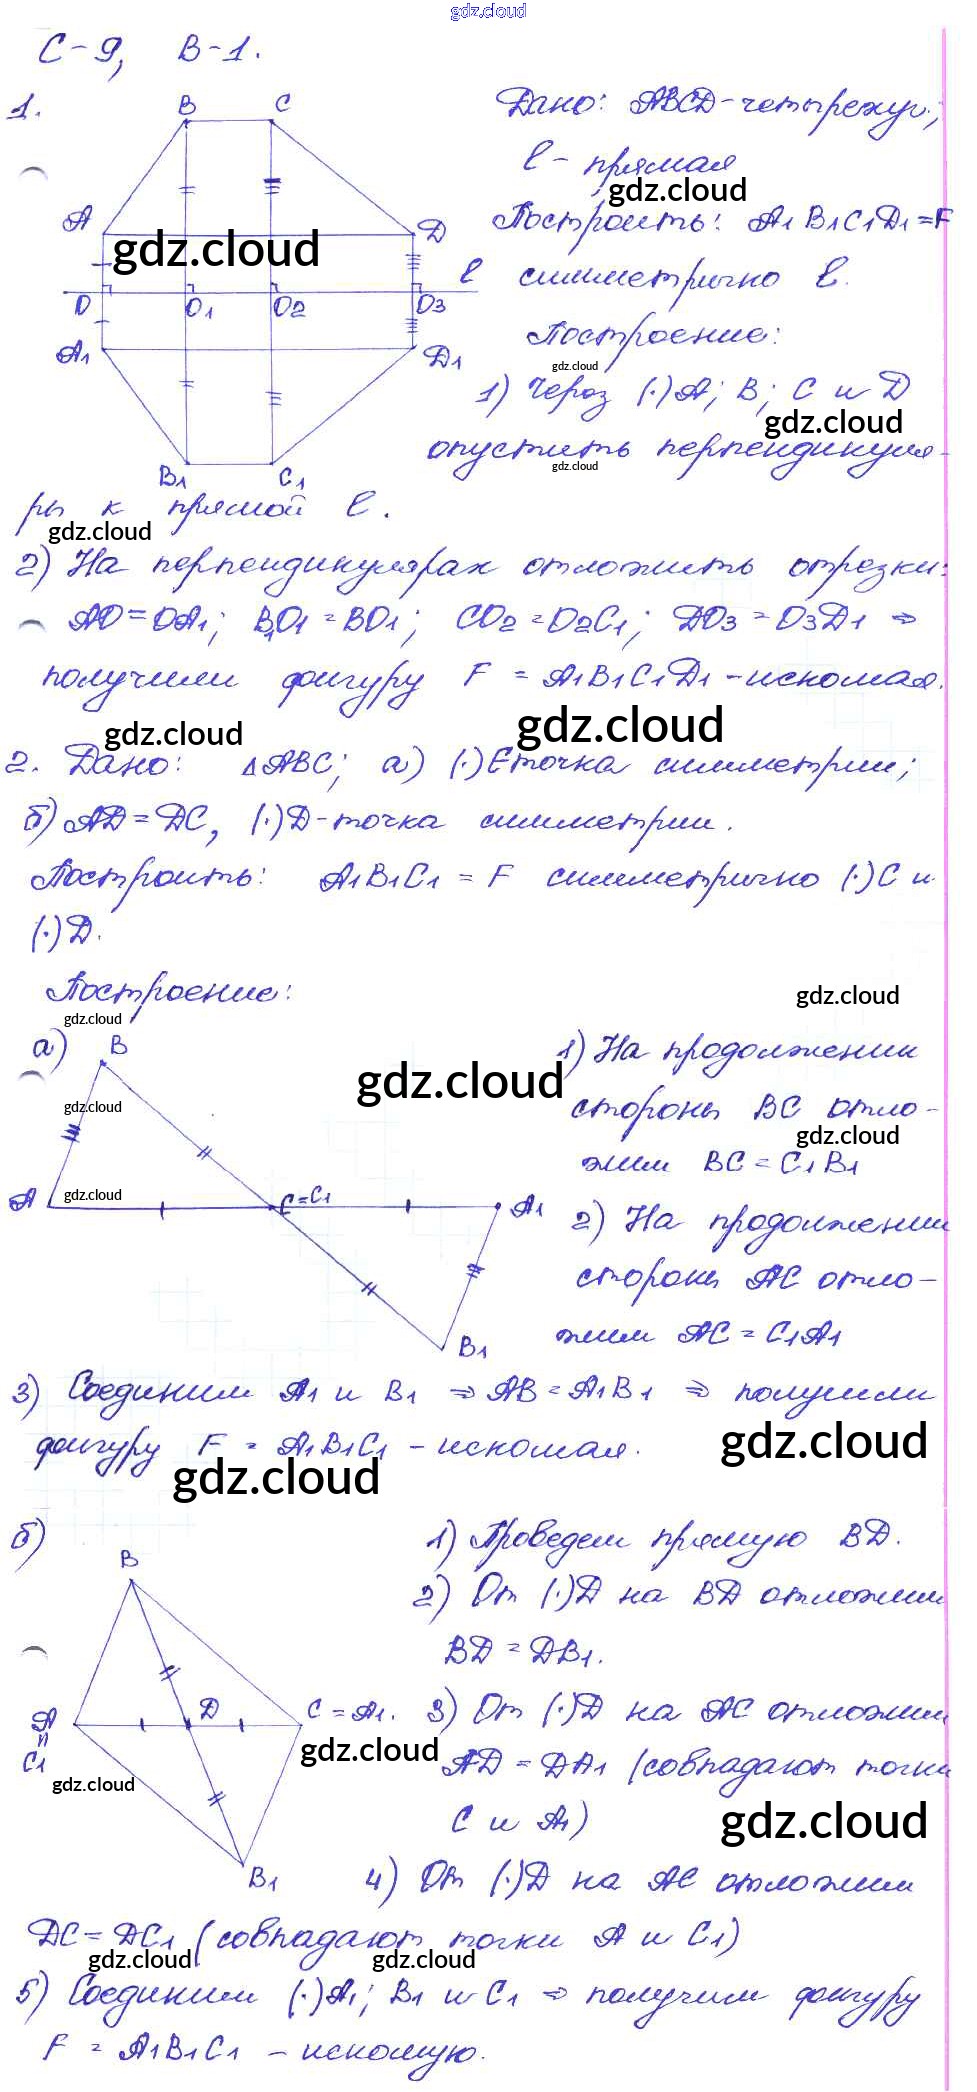 gdz.cloud
С-9, В-1.
1.
B C
Дано: ABCD-четырехуг.;
l - прямая
gdz.cloud
A D
gdz.cloud
Построить: A1B1C1D1=F
симметрично l.
l
O O1 O2 O3
Построение:
A1 D1
gdz.cloud
1) Через (·)A; B; C и D
gdz.cloud
опустить перпендикуля-
gdz.cloud
B1 C1
ры к прямой l.
gdz.cloud
2) На перпендикулярах отложить отрезки:
AO=OA1; B1O1=BO1; CO2=O2C1; DO3=O3D1 ⇒
получили фигуру F = A1B1C1D1 - искомая.
gdz.cloud gdz.cloud
2. Дано: △ABC; а) (·)C точка симметрии;
б) AD=DC, (·)D-точка симметрии.
Построить: A1B1C1 = F симметрично (·)C и
(·)D.
Построение:
gdz.cloud
gdz.cloud
а) B
1) На продолжении
gdz.cloud
стороны BC отло-
gdz.cloud
gdz.cloud
жим BC=C1B1
gdz.cloud
A C=C1 A1
2) На продолжении
стороны AC отло-
жим AC=C1A1
B1
3) Соединим A1 и B1 ⇒ AB=A1B1 ⇒ получили
фигуру F = A1B1C1 - искомая.
gdz.cloud
gdz.cloud
б)
B
1) Проведем прямую BD.
2) От (·)D на BD отложим
BD=DB1.
A D C=A1.
3) От (·)D на AC отложим
C1
gdz.cloud
AD=DA1 (совпадают точки
gdz.cloud
C и A1)
gdz.cloud
B1
4) От (·)D на AC отложим
DC=DC1 (совпадают точки A и C1)
gdz.cloud gdz.cloud
5) Соединим (·)A1; B1 и C1 ⇒ получим фигуру
F = A1B1C1 - искомую.